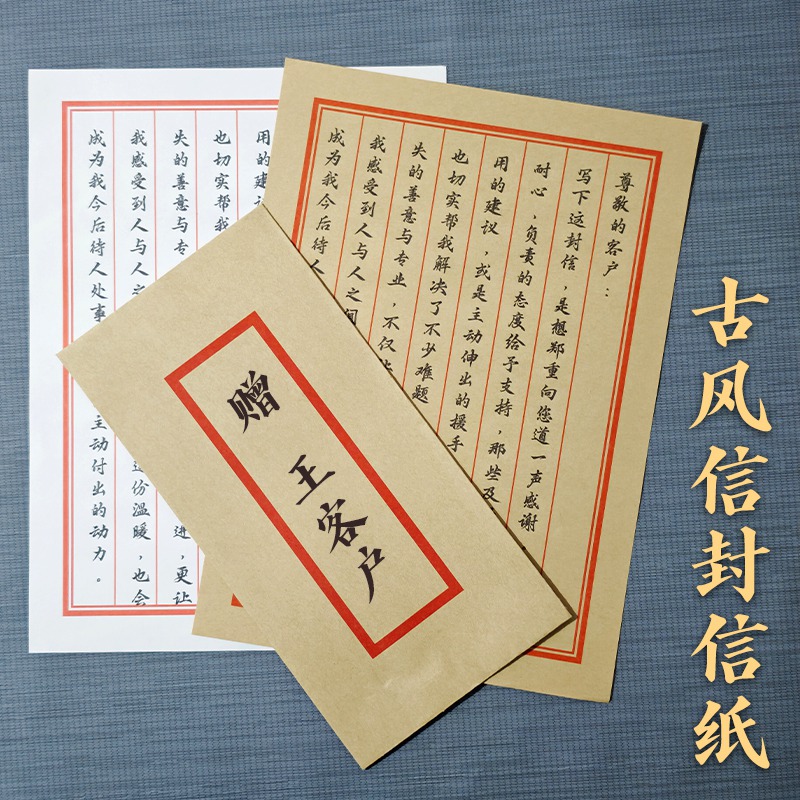 古风信封信纸
尊敬的客户：
写下这封信，是想郑重向您道一声感谢，
耐心，负责的态度给予支持，那些及
用的建议，或是主动伸出的援手
也切实帮我解决了不少难题
失的善意与专业，不仅
我感受到人与人之间
成为我今后待人
赠
王客户
用的建
也切实帮我
失的善意与专
进，更让
我感受到人与人之
份温暖，也会
成为我今后待人处事
主动付出的动力。